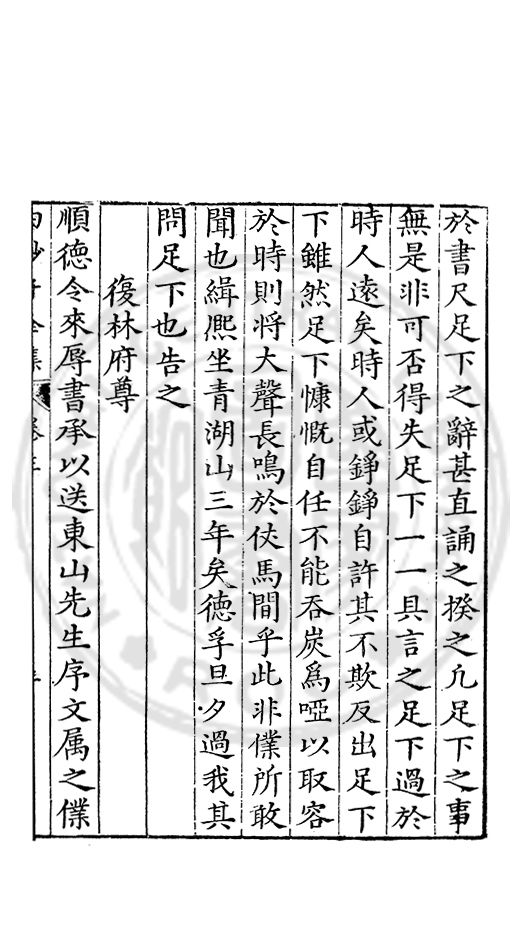 於書尺足下之辭甚直誦之揆之凢足下之事
無是非可否得失足下一一具言之足下過於
時人遠矣時人或錚錚自許其不欺反出足下
下雖然足下慷慨自任不能吞炭爲啞以取容
於時則将大聲長鳴於仗馬間乎此非僕所敢
聞也緝熈坐青湖山三年矣德孚旦夕過我其
問足下也告之
復林府尊
順德令來辱書承以送東山先生序文属之僕